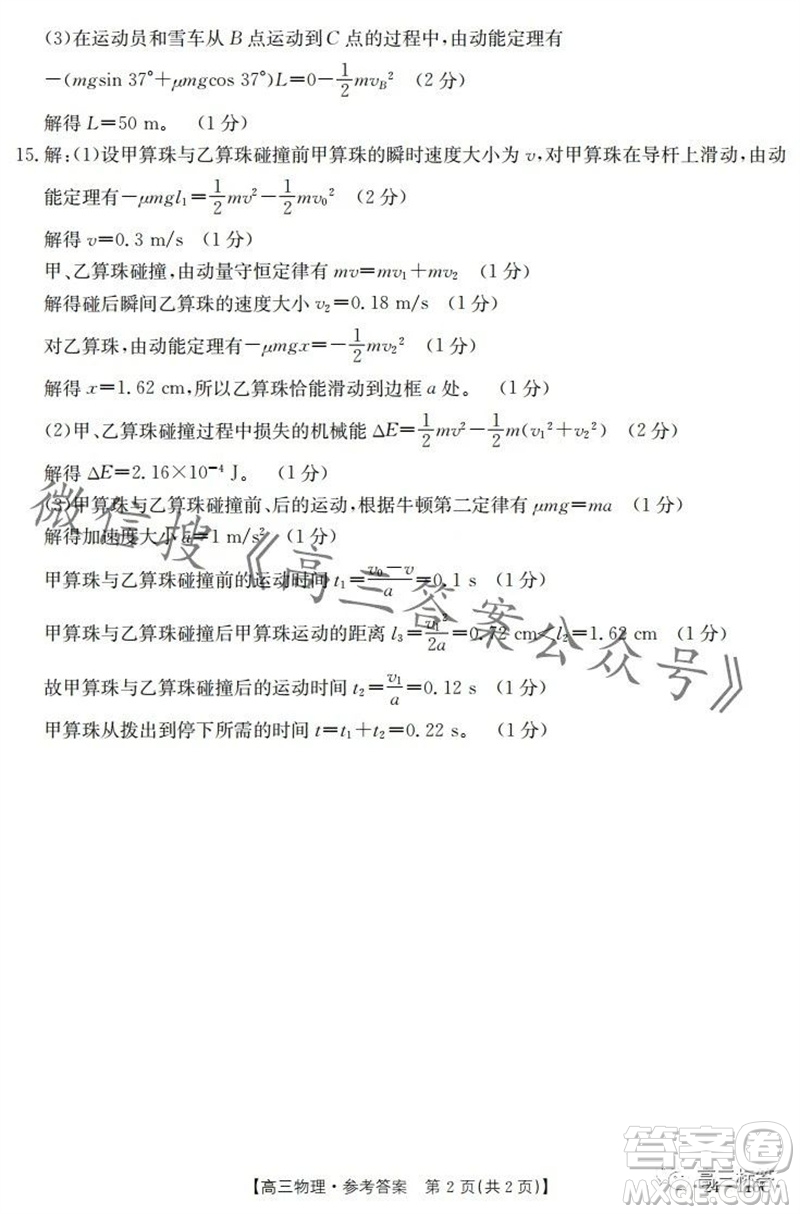 (3)在运动员和雪车从B点运动到C点的过程中,由动能定理有
-(mgsin 37°+μmgcos 37°)L=0-\frac{1}{2}mv_B² (2分)
解得L=50 m。 (1分)
15.解:(1)设甲算珠与乙算珠碰撞前甲算珠的瞬时速度大小为v,对甲算珠在导杆上滑动,由动
能定理有-μmgl₁=\frac{1}{2}mv²-\frac{1}{2}mv₀² (2分)
解得v=0.3 m/s (1分)
甲、乙算珠碰撞,由动量守恒定律有mv=mv₁+mv₂ (1分)
解得碰后瞬间乙算珠的速度大小v₂=0.18 m/s (1分)
对乙算珠,由动能定理有-μmgx=-\frac{1}{2}mv₂² (1分)
解得x=1.62 cm,所以乙算珠恰能滑动到边框a处。 (1分)
(2)甲、乙算珠碰撞过程中损失的机械能ΔE=\frac{1}{2}mv²-\frac{1}{2}m(v₁²+v₂²) (2分)
解得ΔE=2.16×10⁻⁴ J。 (1分)
(3)甲算珠与乙算珠碰撞前、后的运动,根据牛顿第二定律有μmg=ma (1分)
解得加速度大小a=1 m/s² (1分)
甲算珠与乙算珠碰撞前的运动时间t₁=\frac{v₀-v}{a}=0.1 s (1分)
甲算珠与乙算珠碰撞后甲算珠运动的距离l₃=\frac{v₁²}{2a}=0.72 cm<l₂=1.62 cm (1分)
故甲算珠与乙算珠碰撞后的运动时间t₂=\frac{v₁}{a}=0.12 s (1分)
甲算珠从拨出到停下所需的时间t=t₁+t₂=0.22 s。 (1分)
微信搜《高三答案公众号》
【高三物理·参考答案 第2页(共2页)】
答案圈
高三标答
MXQE.COM